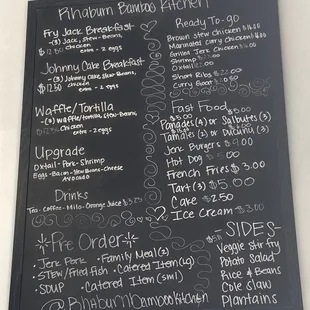 Rhaburn Bamboo Kitchen
Fry Jack Breakfast
-(3) Jack, Stew-Beans,
$12.50 Chicken
extra - 2 eggs
Johnny Cake Breakfast
-(3) Johnny Cake, Stew Beans,
$12.50 Chicken
extra - 2 eggs
Waffle/Tortilla
-(2) Waffle/tortilla, Stew-Beans,
Chicken
extra - 2 eggs
Upgrade
Oxtail-Pork-Shrimp
Eggs-Bacon-Stew Beans-Cheese
Avocado
Drinks
Tea-Coffee-Milo-Orange Juice
Pre Order
• Jerk Pork • Family Meal(2)
• Stew/fried fish • Catered Item(Lg)
• Soup • Catered Item (Sml)
@Rhaburnbambookitchen
Ready To-go
Brown Stew Chicken
Marinated Curry Chicken
Grilled Jerk Chicken
Shrimp
Oxtail
Short Ribs
Curry Goat
Fast Food
Panades(4) or Salbutes(3)
Tamale(2) or Ducunu(2)
Jerk Burgers $9.00
Hot Dog $5.00
French Fries $3.00
Tart (3) $5.00
Cake $2.50
Ice Cream $3.00
-SIDES-
Veggie Stir fry
Potato Salad
Rice & Beans
Cole Slaw
Plantains